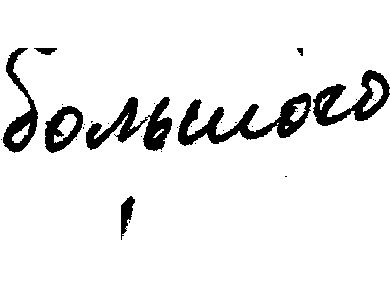 большого